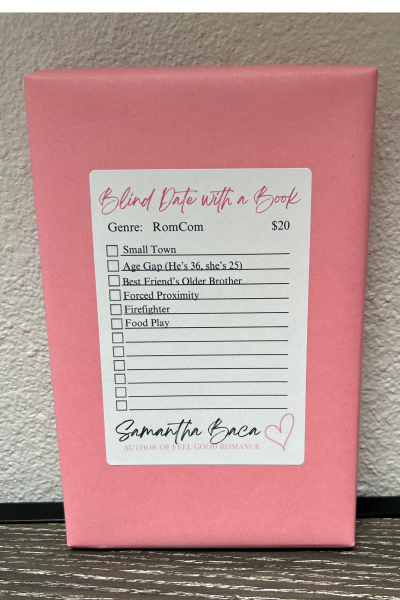 Blind Date with a Book
Genre: RomCom $20
Small Town
Age Gap (He's 36, she's 25)
Best Friend's Older Brother
Forced Proximity
Firefighter
Food Play
Samantha Baca
AUTHOR OF FEEL GOOD ROMANCE